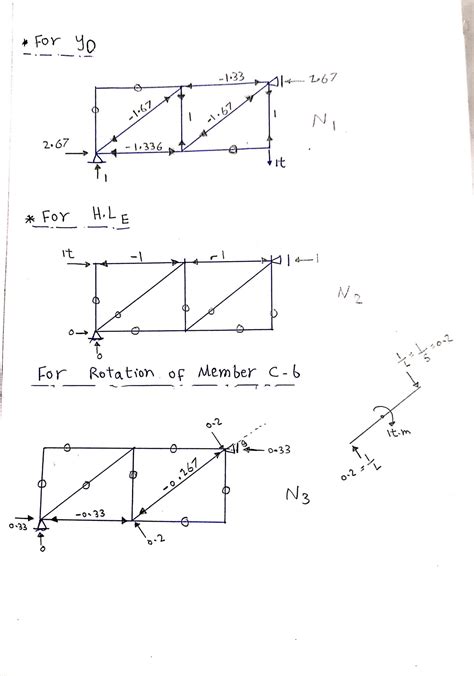 * For yD
-1.33
2.67
-1.67
1
-1.67
1
N1
2.67
-1.336
1
1t
* For H.LE
1t
-1
-1
1
N2
0
0
For Rotation of Member C-b
1/L = 1/5 = 0.2
1t.m
0.2 = 1/L
0.2
g
0.33
-0.267
N3
0.33
-0.33
0
0.2